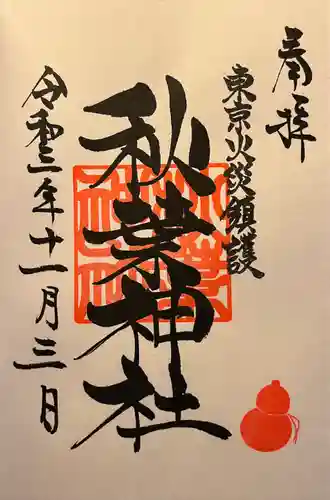 奉拝
東京火災鎮護
秋葉神社
令和三年十一月三日